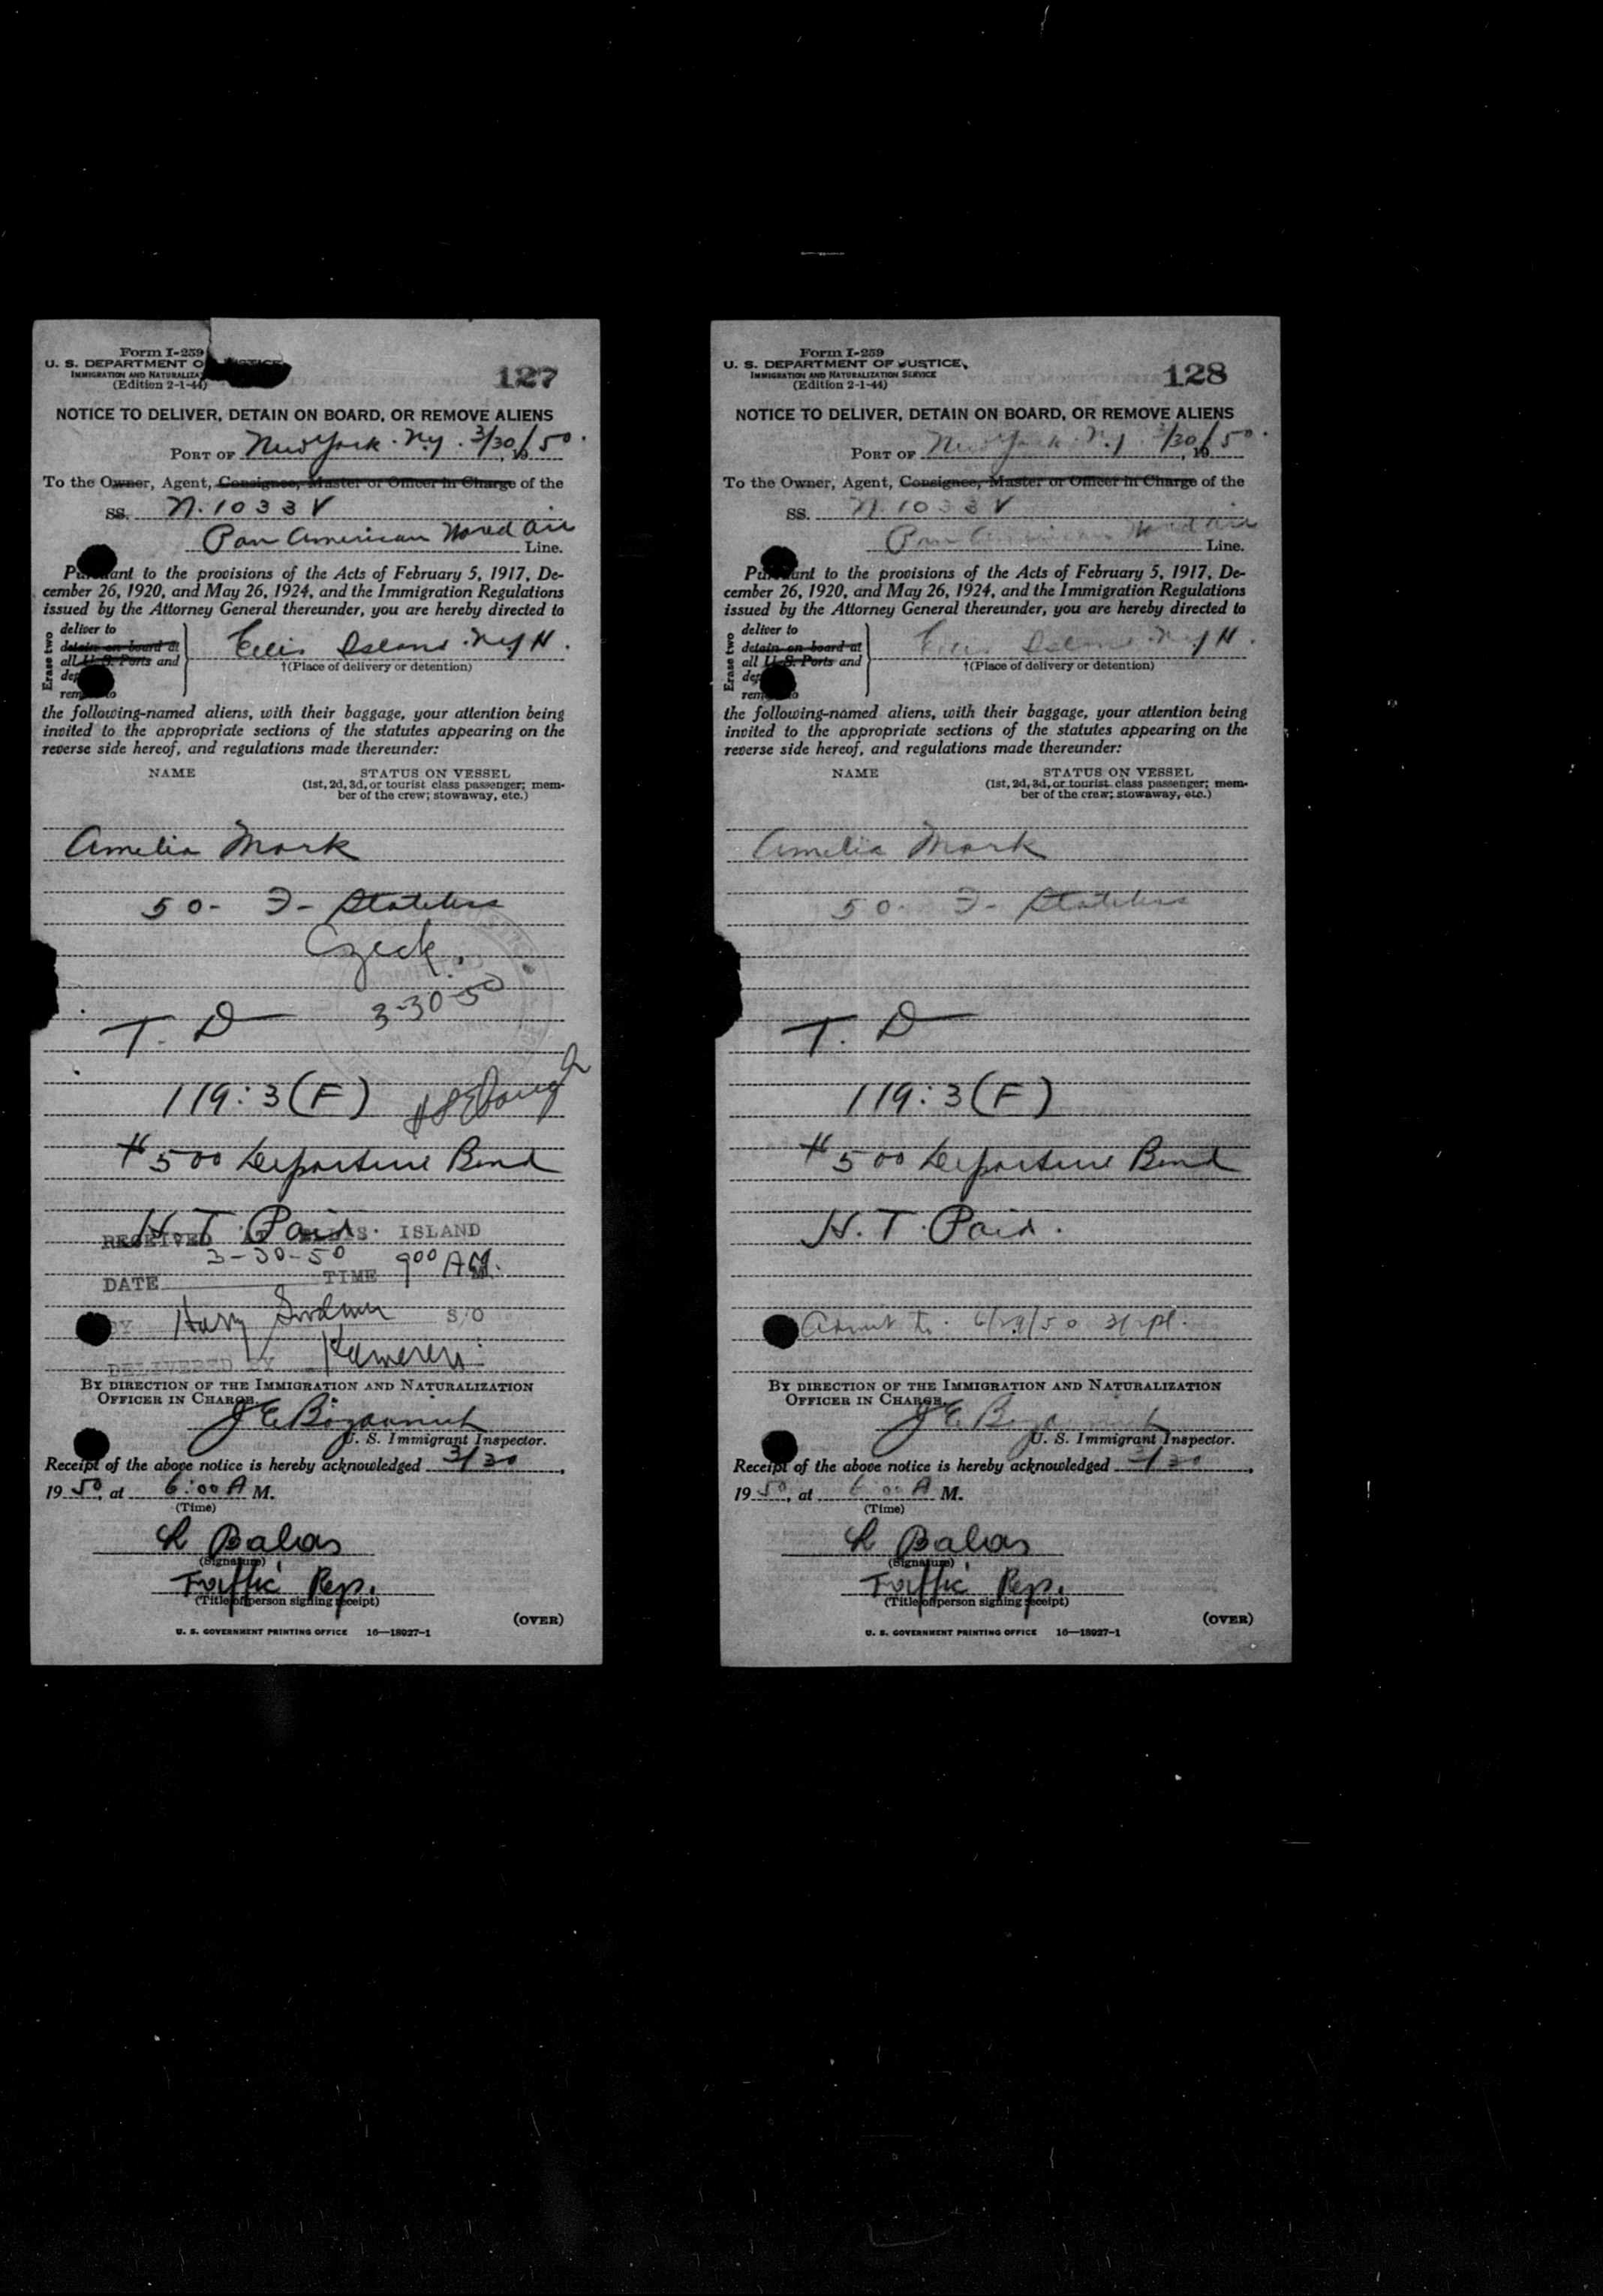 Form I-259
U. S. DEPARTMENT O
IMMIGRATION AND NATURALIZA
(Edition 2-1-44)
127
NOTICE TO DELIVER, DETAIN ON BOARD, OR REMOVE ALIENS
PORT OF New York. N.y. 3/30, 1950.
To the Owner, Agent, Consignee, Master or Officer in Charge of the
SS. N.1033V
Pan American World Air Line.
Pursuant to the provisions of the Acts of February 5, 1917, De-
cember 26, 1920, and May 26, 1924, and the Immigration Regulations
issued by the Attorney General thereunder, you are hereby directed to
Erase two
deliver to
detain on board at
all U. S. Ports and
dep
remove to
Ellis Island. N.Y.H.
†(Place of delivery or detention)
the following-named aliens, with their baggage, your attention being
invited to the appropriate sections of the statutes appearing on the
reverse side hereof, and regulations made thereunder:
NAME STATUS ON VESSEL
(1st, 2d, 3d, or tourist class passenger; mem-
ber of the crew; stowaway, etc.)
Amelia Mark
50- F- Stateless
Czech.
3-30-50
T. D
119:3(F)
$500 Departure Bond
H.T. Paid.
RECEIVED ELLIS ISLAND
3-30-50 900 AM.
DATE TIME
BY Harry S/O
DELIVERED BY
BY DIRECTION OF THE IMMIGRATION AND NATURALIZATION
OFFICER IN CHARGE.
U. S. Immigrant Inspector.
Receipt of the above notice is hereby acknowledged 3/30,
1950, at 6:00 A M.
(Time)
(Signature)
Traffic Rep.
(Title of person signing receipt)
(OVER)
U. S. GOVERNMENT PRINTING OFFICE 16—18027-1
Form I-259
U. S. DEPARTMENT OF JUSTICE,
IMMIGRATION AND NATURALIZATION SERVICE
(Edition 2-1-44)
128
NOTICE TO DELIVER, DETAIN ON BOARD, OR REMOVE ALIENS
PORT OF New York. N.y. 3/30, 1950.
To the Owner, Agent, Consignee, Master or Officer in Charge of the
SS. N.1033V
Pan American World Air Line.
Pursuant to the provisions of the Acts of February 5, 1917, De-
cember 26, 1920, and May 26, 1924, and the Immigration Regulations
issued by the Attorney General thereunder, you are hereby directed to
Erase two
deliver to
detain on board at
all U. S. Ports and
dep
remove to
Ellis Island. N.Y.H.
†(Place of delivery or detention)
the following-named aliens, with their baggage, your attention being
invited to the appropriate sections of the statutes appearing on the
reverse side hereof, and regulations made thereunder:
NAME STATUS ON VESSEL
(1st, 2d, 3d, or tourist class passenger; mem-
ber of the crew; stowaway, etc.)
Amelia Mark
50- F- Stateless
T. D
119:3(F)
$500 Departure Bond
H.T. Paid.
Admit to. 6/29/50
BY DIRECTION OF THE IMMIGRATION AND NATURALIZATION
OFFICER IN CHARGE.
U. S. Immigrant Inspector.
Receipt of the above notice is hereby acknowledged 3/30,
1950, at 6:00 A M.
(Time)
(Signature)
Traffic Rep.
(Title of person signing receipt)
(OVER)
U. S. GOVERNMENT PRINTING OFFICE 16—18027-1